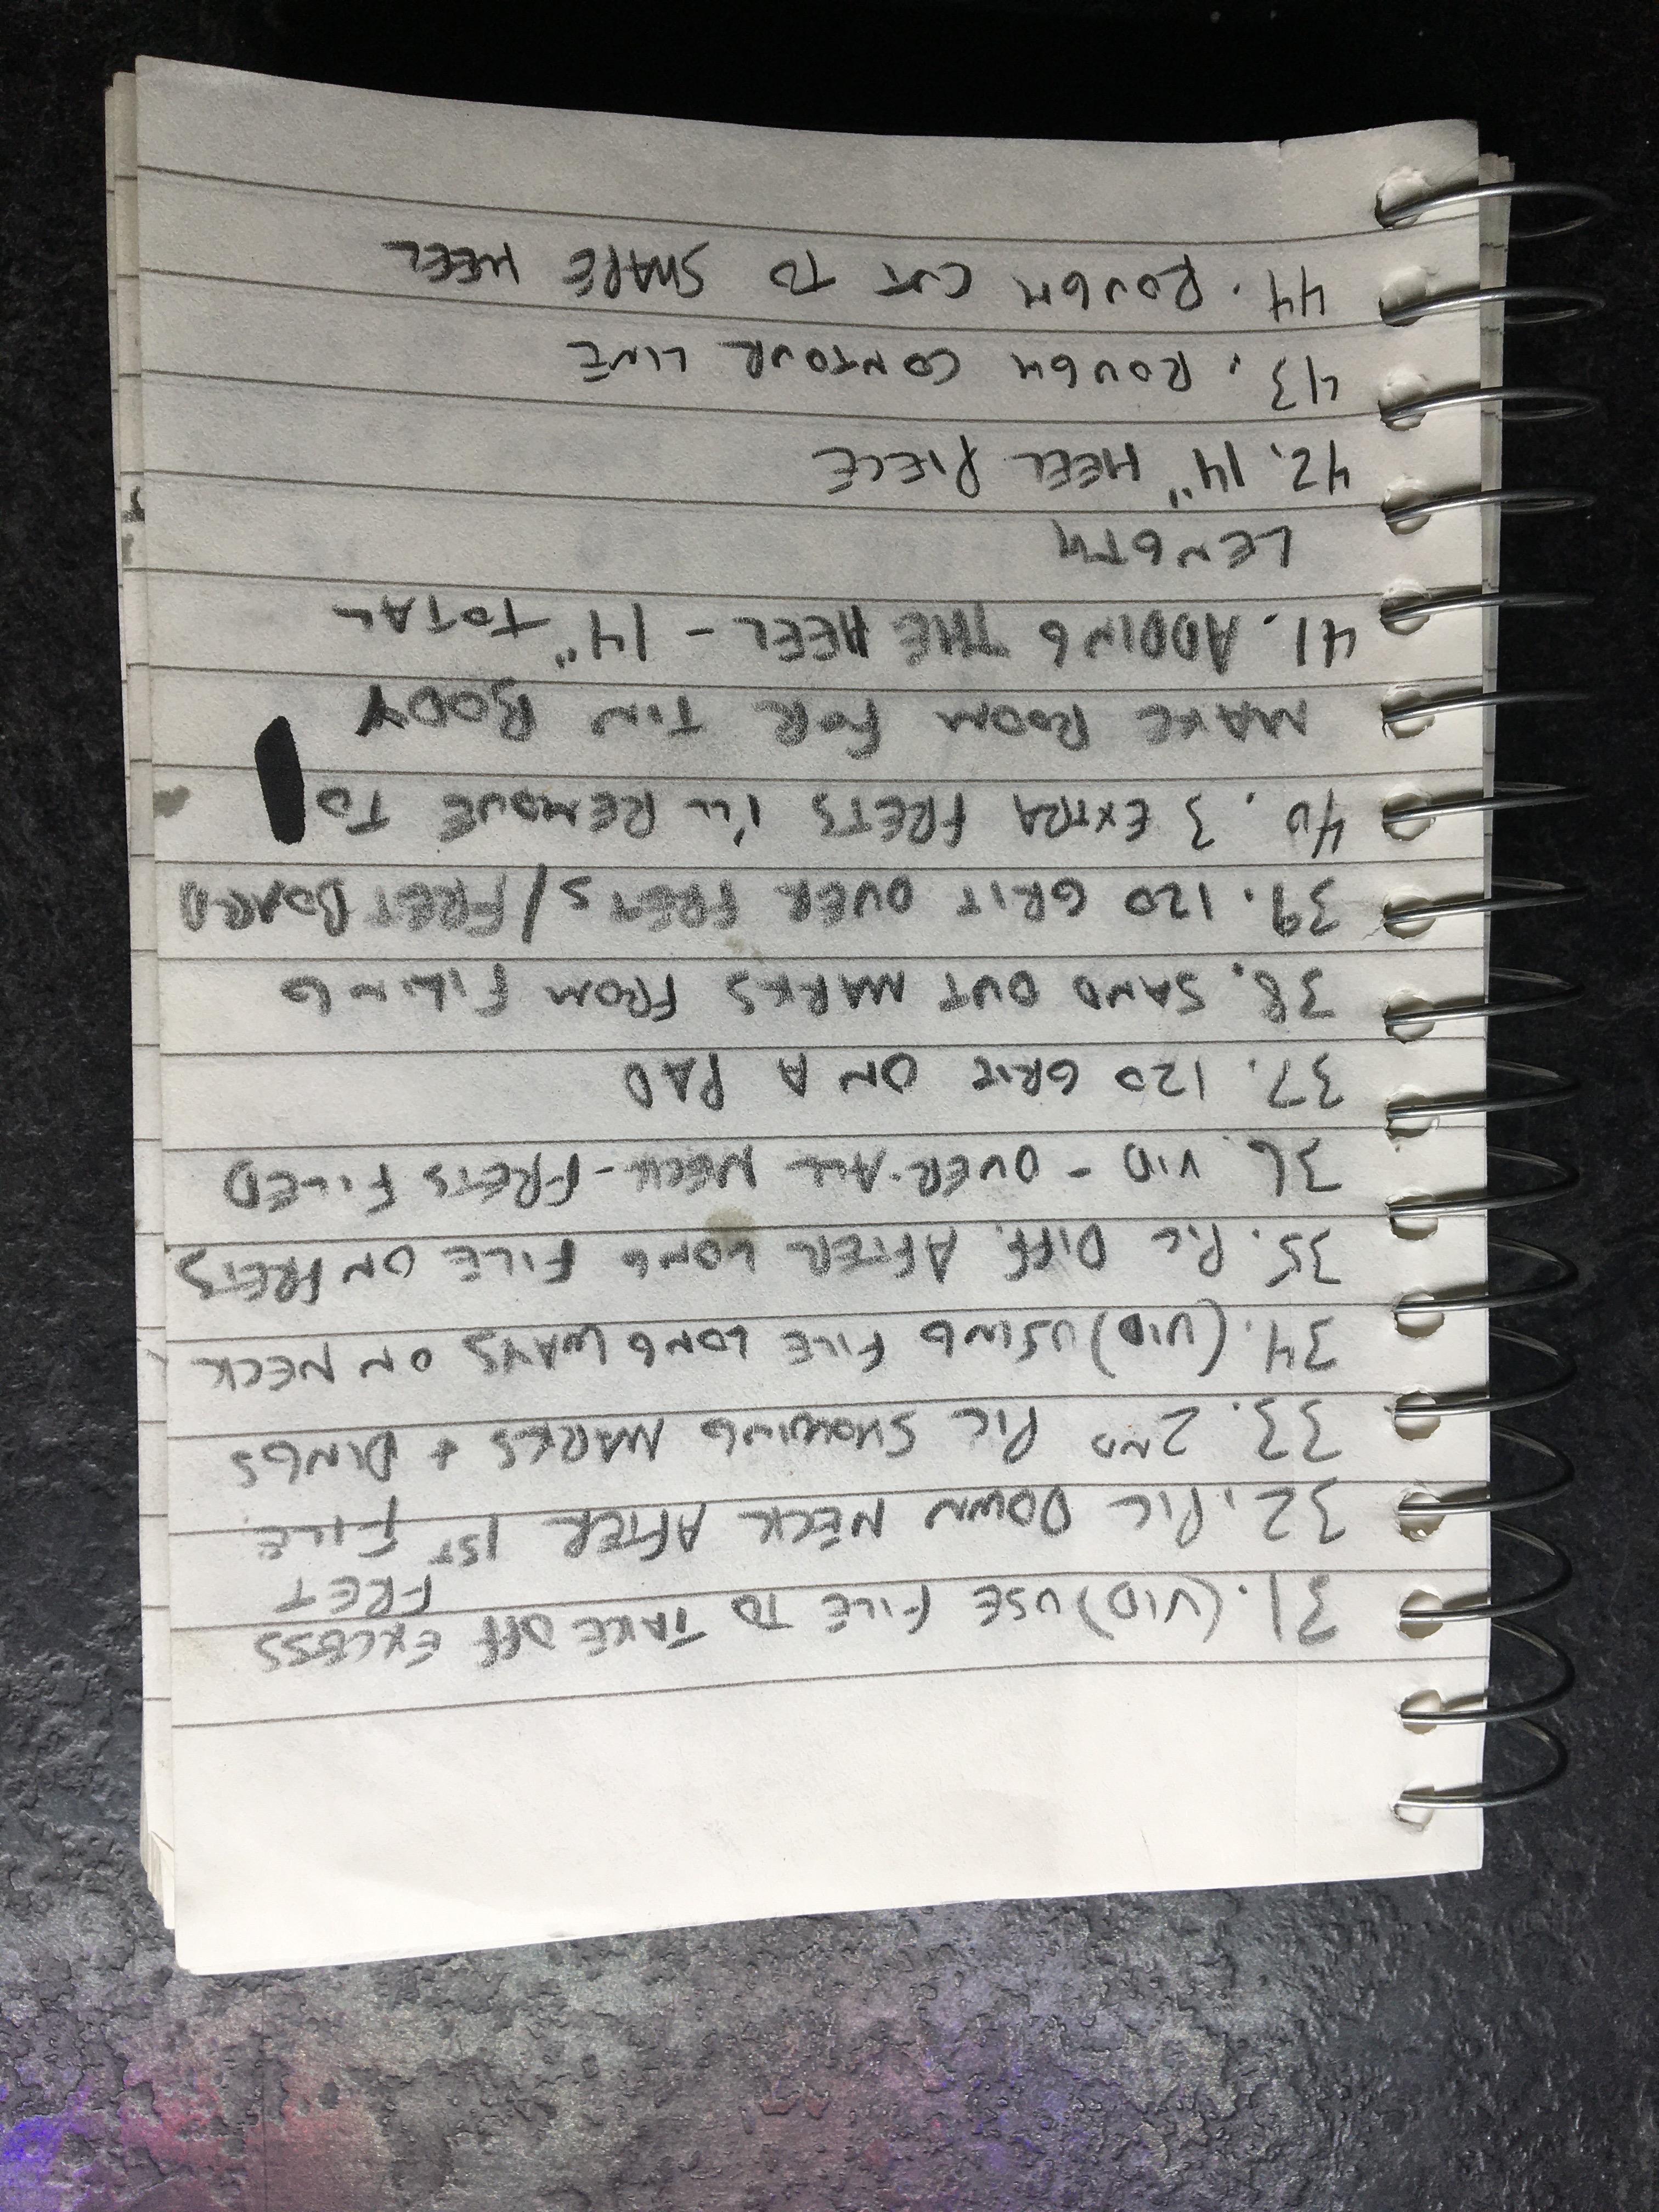 31. (VID) USE FILE TO TAKE OFF EXCESS
FRET
32. PIC DOWN NECK AFTER 1ST FILE
33. 2ND PIC SHOWING MARKS + DINGS
34. (VID) USING FILE LONG WAYS ON NECK
35. PIC DIFF. AFTER LONG FILE ON FRETS
36. VID - OVER-ALL NECK - FRETS FILED
37. 120 GRIT ON A PAD
38. SAND OUT MARKS FROM FILING
39. 120 GRIT OVER FRETS/FRETBOARD
40. 3 EXTRA FRETS I'LL REMOVE TO
MAKE ROOM FOR TIN BODY
41. ADDING THE HEEL - 14" TOTAL
LENGTH
42. 14" HEEL PIECE
43. ROUGH CONTOUR LINE
44. ROUGH CUT TO SHAPE HEEL